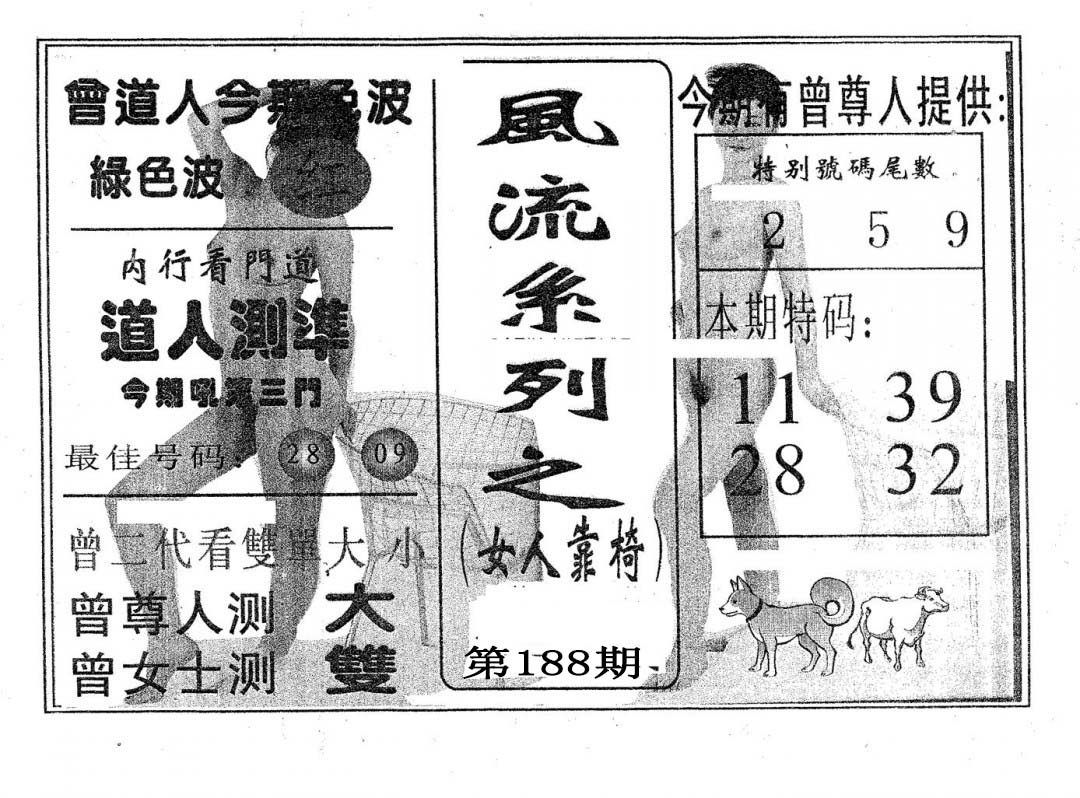 曾道人今期色波
綠色波
红
内行看門道
道人測準
今期吼precise三門
最佳号码: 28 09
曾二代看雙單大小
曾尊人测 大
曾女士测 雙
風流系列之
(女人靠椅)
第188期
今期有曾尊人提供:
特别號碼尾數
2 5 9
本期特码:
11 39
28 32